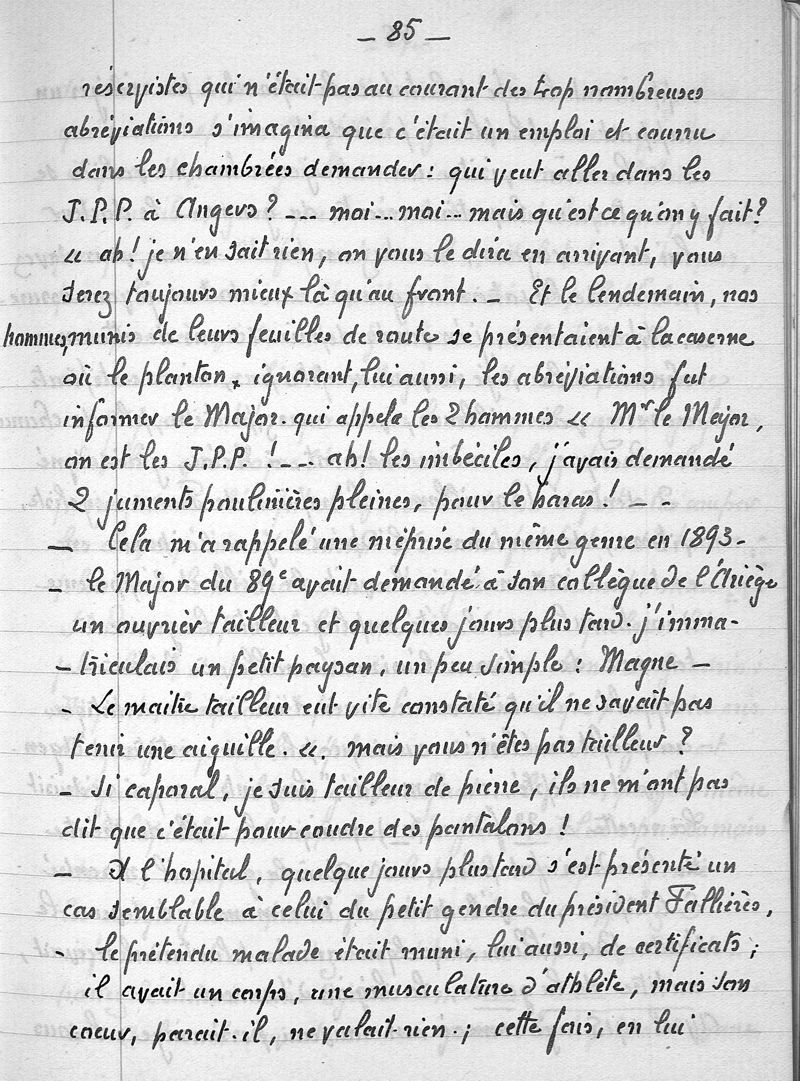 — 85 —
réservistes qui n'était pas au courant des trop nombreuses
abréviations s'imagina que c'était un emploi et courru
dans les chambrées demander : qui veut aller dans les
J.P.P. à Angers ? --- moi... moi... mais qu'est ce qu'on y fait ?
« ah ! je n'en sait rien, on vous le dira en arrivant, vous
serez toujours mieux là qu'au front. — Et le lendemain, nos
hommes, munis de leurs feuilles de route se présentaient à la caserne
où le planton, ignorant, lui aussi, les abréviations fut
informer le Major. qui appela les 2 hommes « Mr le Major,
on est les J.P.P. ! -- ah ! les imbéciles, j'avais demandé
2 juments poulinières pleines, pour le haras ! — -
— Cela m'a rappelé une méprise du même genre en 1893 -
- le Major du 89e avait demandé à son collègue de l'Ariège
un ouvrièr tailleur et quelques jours plus tard. j'imma-
- triculais un petit paysan, un peu simple : Magne —
- Le maitre tailleur eut vite constaté qu'il ne savait pas
tenir une aiguille. «. mais vous n'êtes pas tailleur ?
- Si caporal, je suis tailleur de pierre, ils ne m'ont pas
dit que c'était pour coudre des pantalons !
— A l'hopital, quelque jours plus tard s'est présenté un
cas semblable à celui du petit gendre du président Fallières,
- le prétendu malade était muni, lui aussi, de certificats ;
il avait un corps, une musculature d'athlète, mais son
coeur, parait-il, ne valait rien. ; cette fois, en lui